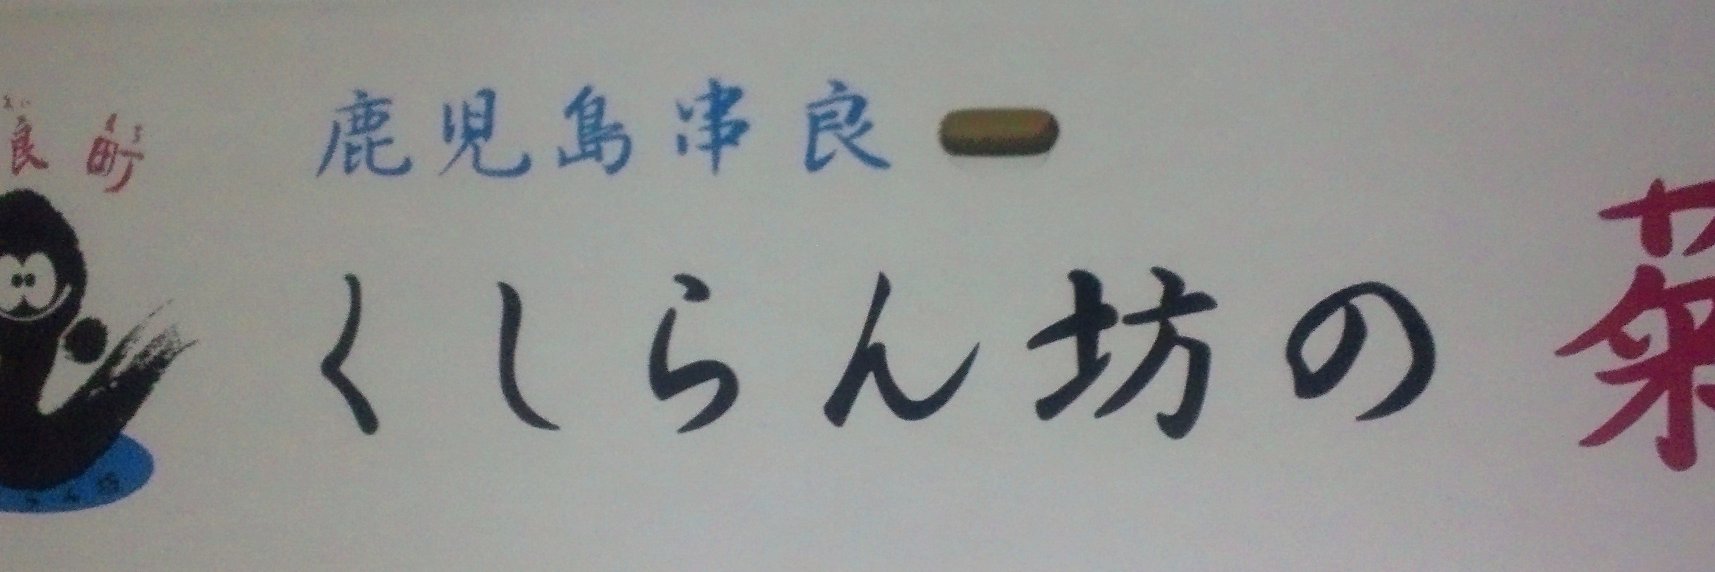 良町
鹿児島串良
くしらん坊の菜